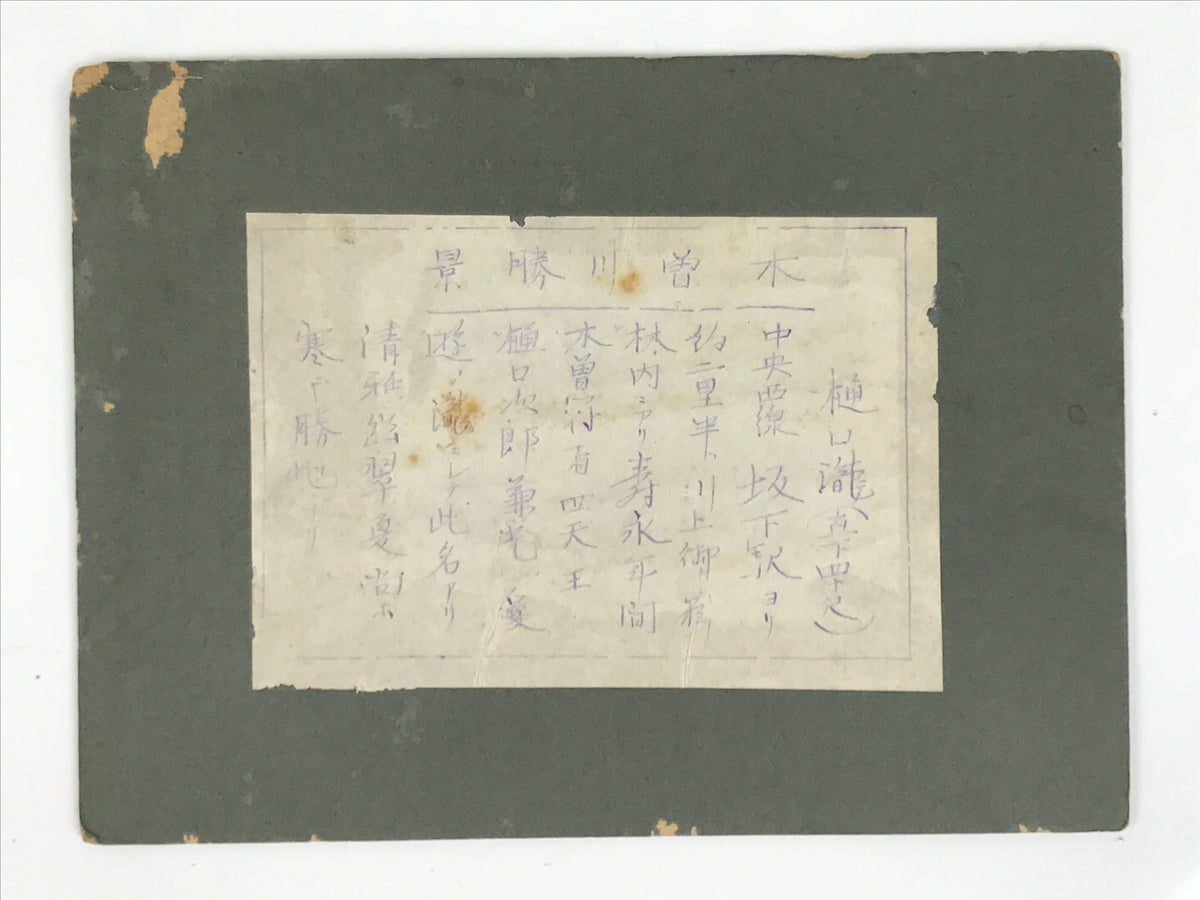 木曽川勝景
樋口瀧(直下四十尺)
中央西線 坂下駅ヨリ
約二里半川上御料
林内ニアリ寿永年間
木曽将軍四天王
樋口次郎兼光ノ愛
遊ノ瀧ニシテ此名アリ
清雅幽翠夏尚ホ
寒キ勝地ナリ